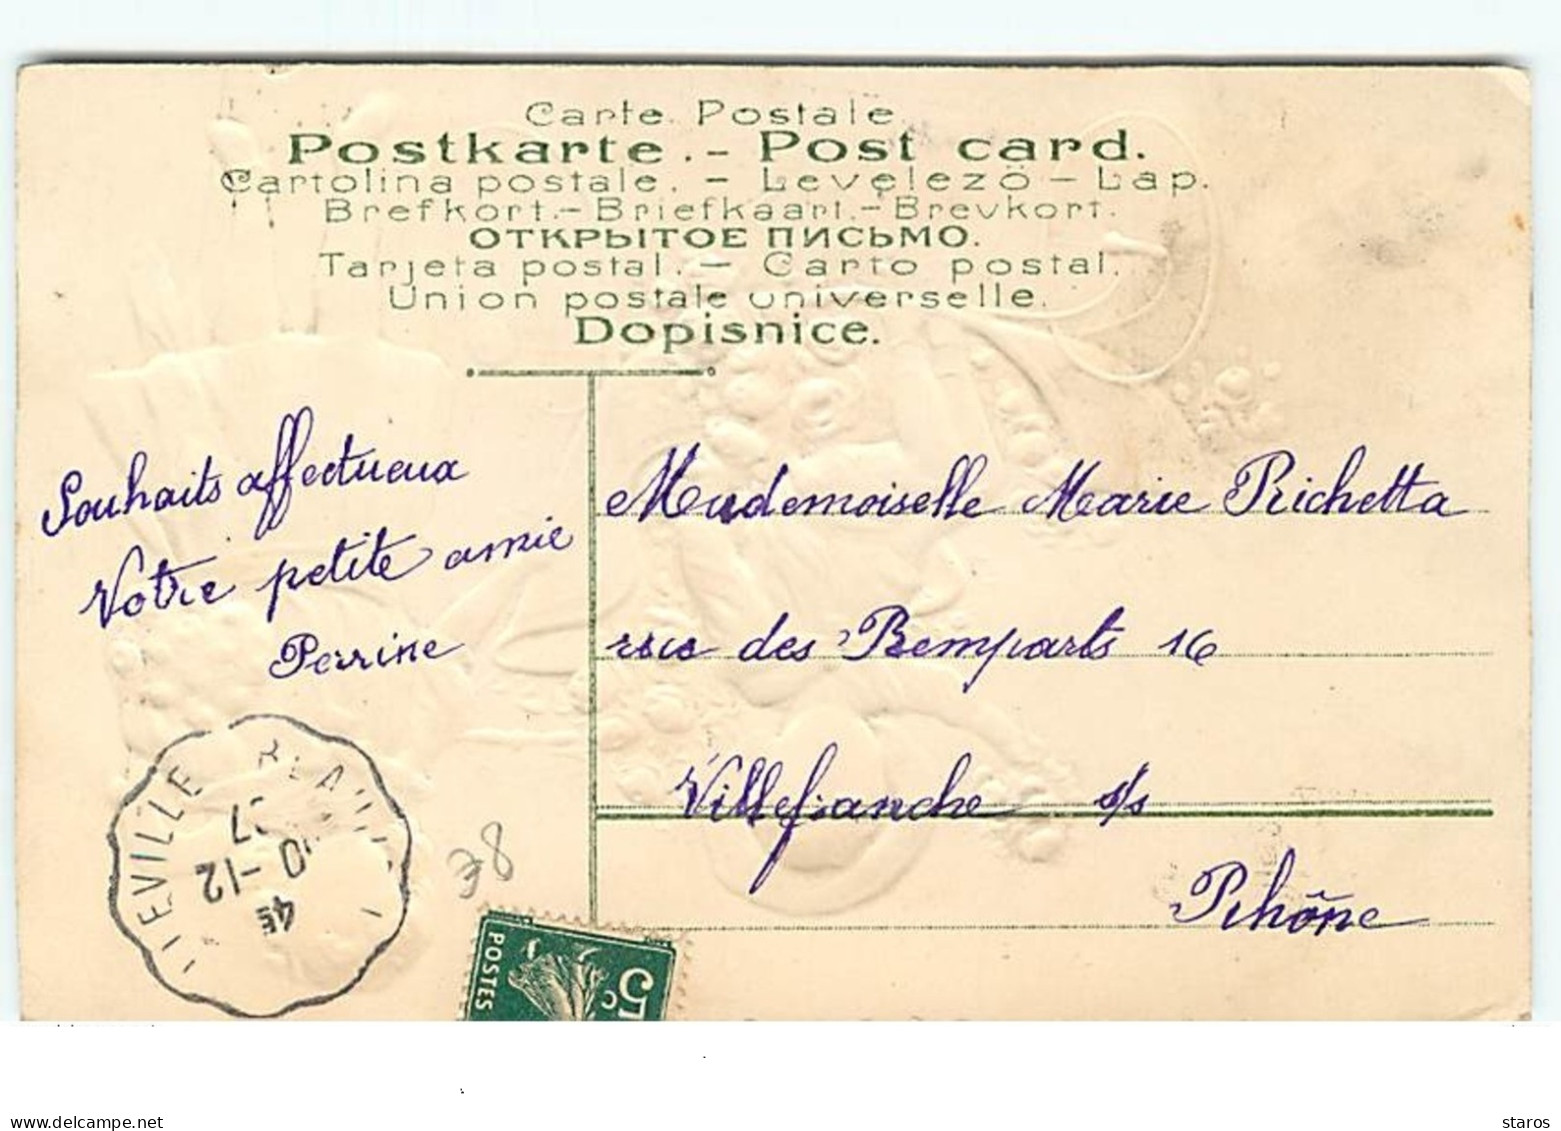 Carte Postale
Postkarte. - Post card.
Cartolina postale. - Levelező - Lap.
Brefkort. - Briefkaart. - Brevkort.
ОТКРЫТОЕ ПИСЬМО.
Tarjeta postal. - Carto postal.
Union postale universelle.
Dopisnice.
Souhaits affectueux
Votre petite amie
Perrine
Mademoiselle Marie Richetta
rue des Remparts 16
Villefranche s/s
Rhône
4E
-12
07
8€
POSTES
5c
www.delcampe.net
staros